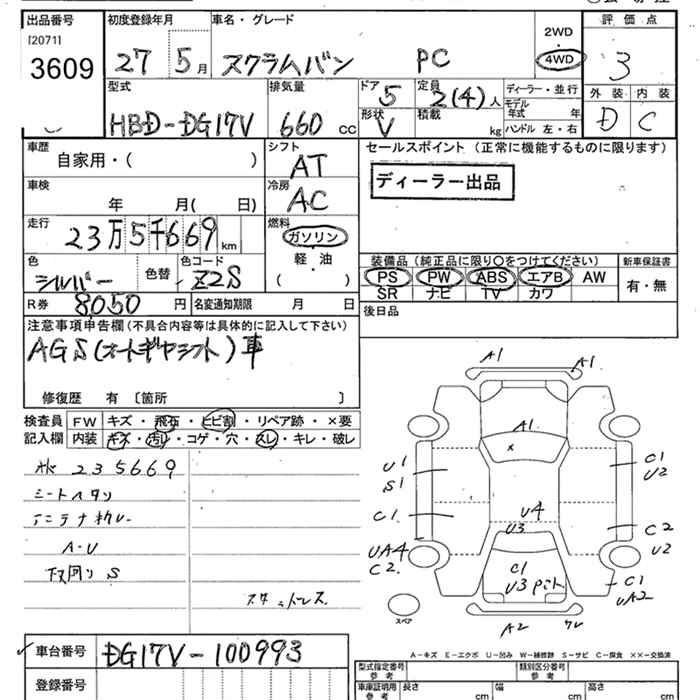 出品番号
[2071]
3609
初度登録年月
27 5月
車名・グレード
スクラムバン PC
2WD
4WD
評価点
3
外装 内装
D C
型式
HBD-DG17V
排気量
660 cc
ドア
5
形状
V
定員
2(4)人
積載
kg
ディーラー・並行
モデル
年式 年
ハンドル 左・右
車歴
自家用・( )
シフト
AT
セールスポイント(正常に機能するものに限ります)
ディーラー出品
車検
年 月( 日)
冷房
AC
走行
23万5千669km
燃料
ガソリン
軽・油
( )
色
シルバー
色替
色コード
Z2S
装備品(純正品に限り〇をつけてください)
PS PW ABS エアB AW
SR ナビ TV カワ
新車保証書
有・無
R券 8050円
名変通知期限 月 日
後日品
注意事項申告欄(不具合内容等は具体的に記入して下さい)
AGS(オートギヤシフト)車
修復歴 有〔箇所 〕
検査員
記入欄
FW キズ・飛石・ヒビ割・リペア跡・×要
内装 キズ・汚レ・コゲ・穴・スレ・キレ・破レ
235669
シートヘタリ
アンテナ
A-U
下廻り S
スタッドレス
A1 A1
A1
×
U1
S1
C1
U2
C1
U4
U3
C2
U2
UA4
C2
C1
U3
C1
UA2
スペア
A2
A-キズ E-エクボ U-凹み W-補修跡 S-サビ C-腐食 ××-交換済
車台番号 DG17V-100993
登録番号
型式指定番号
参考
類別区分番号
参考
車庫証明用
参考
長さ cm
幅 cm
高さ cm